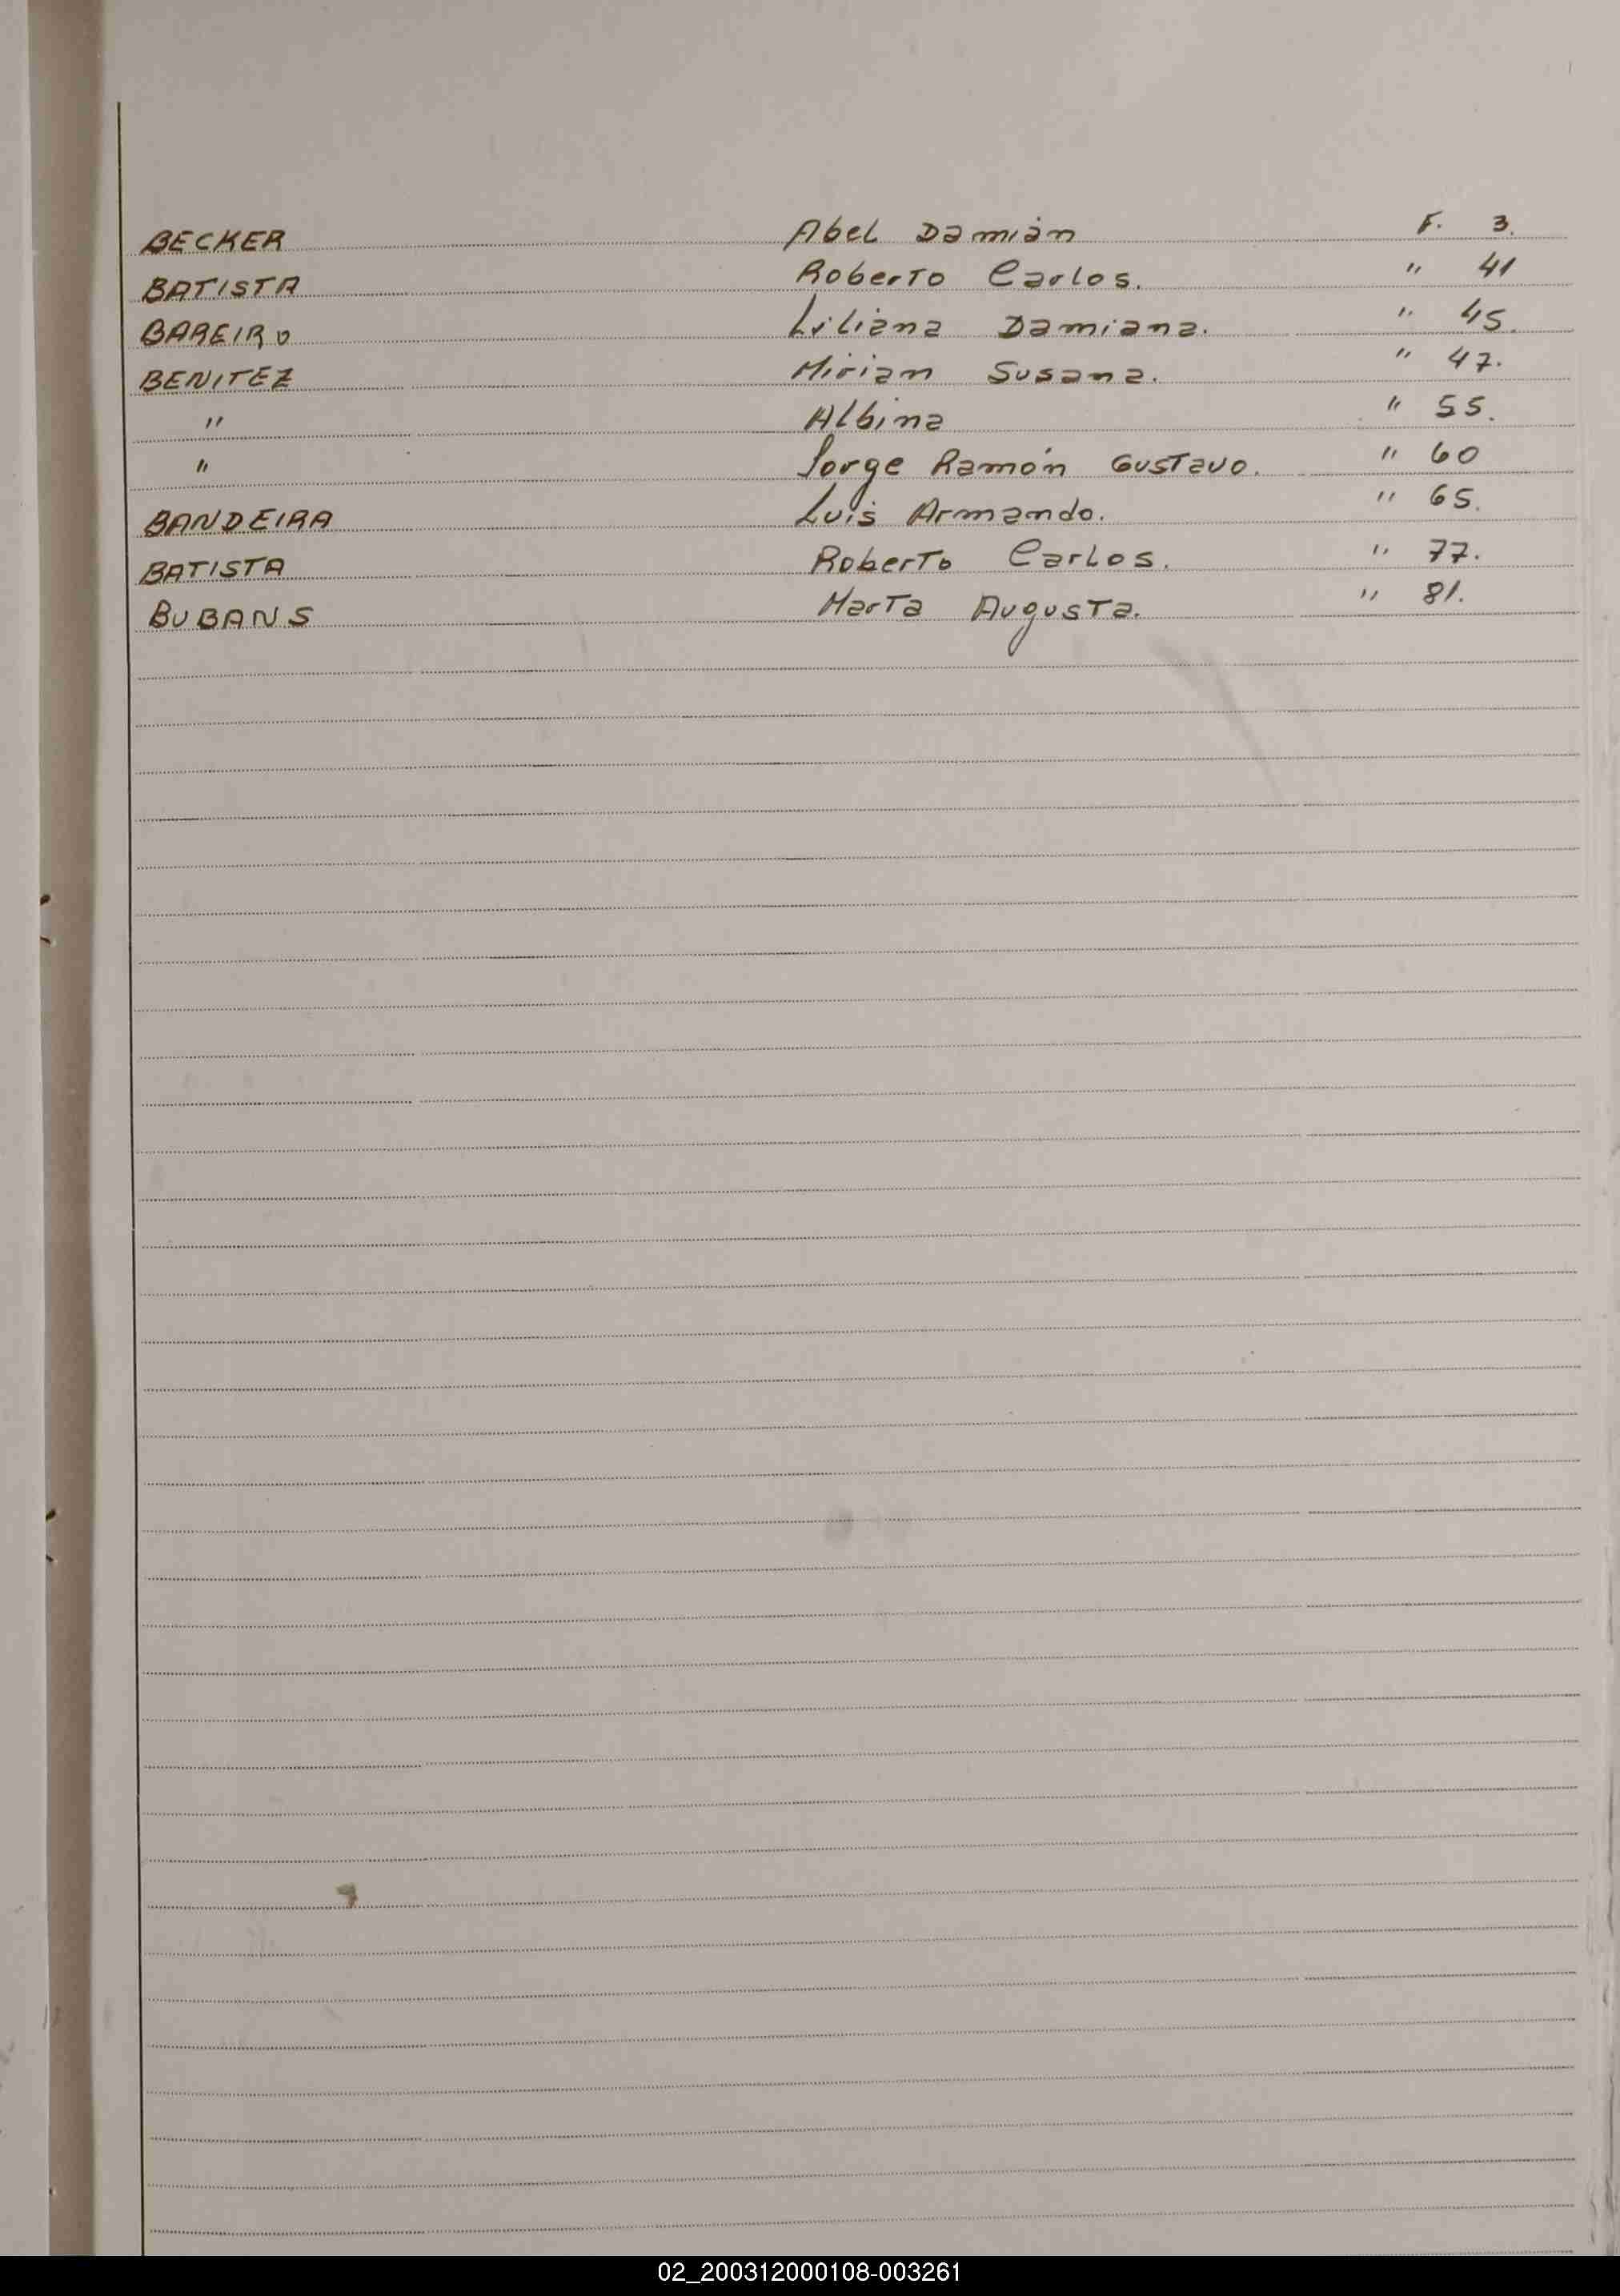 BECKER Abel Damián F. 3.
BATISTA Roberto Carlos. " 41
BAREIRO Liliana Damiana. " 45.
BENITEZ Miriam Susana. " 47.
" Albina " 55.
" Jorge Ramón Gustavo. " 60
BANDEIRA Luis Armando. " 65.
BATISTA Roberto Carlos. " 77.
BUBANS Marta Augusta. " 81.
02_200312000108-003261